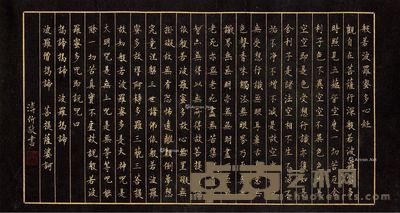 般若波羅蜜多心經
觀自在菩薩行深般若波羅蜜多
時照見五蘊皆空度一切苦厄舍
利子色不異空空不異色色即是
空空即是色受想行識亦復如是
舍利子是諸法空相不生不滅不
垢不淨不增不減是故空中無色
無受想行識無眼耳鼻舌身意無
色聲香味觸法無眼界乃至無意
識界無無明亦無無明盡乃至無
老死亦無老死盡無苦集滅道無
智亦無得以無所得故菩提薩埵
依般若波羅蜜多故心無罣礙無
罣礙故無有恐怖遠離顛倒夢想
究竟涅槃三世諸佛依般若波羅
蜜多故得阿耨多羅三藐三菩提
故知般若波羅蜜多是大神咒是
大明咒是無上咒是無等等咒能
除一切苦真實不虛故說般若波
羅蜜多咒即說咒曰
揭諦揭諦 波羅揭諦
波羅僧揭諦 菩提薩婆訶
溥忻敬書